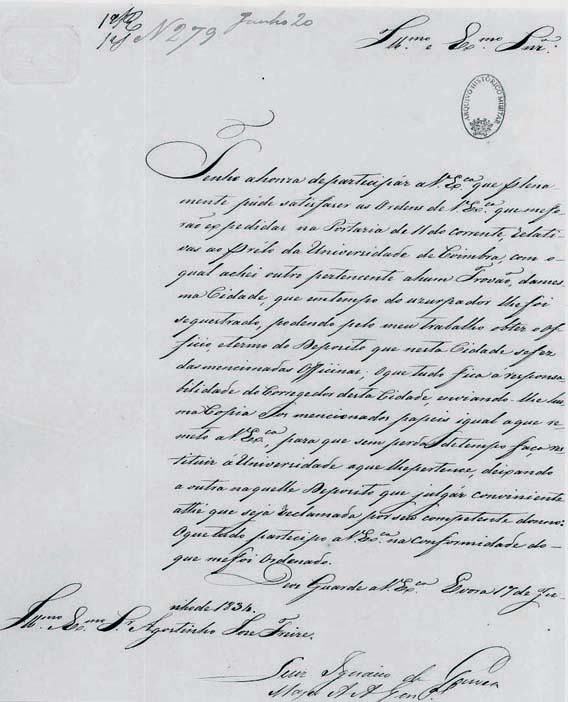 Nº 279 Junho 20
Illmo e Exmo Snr.
ARQUIVO HISTÓRICO MILITAR
Tenho a honra de participár a V. Exca que plena
mente púde satisfazer as Ordens de V. Exca que me fo
rão expedidas na Portaria de 11 do corrente, relati
vas ao Prélo da Universidade de Coimbra, com o
qual achei outro pertencente a hum Trovão, da mes
ma Cidade, que em tempo do uzurpador lhe foi
sequestrado, podendo pelo meu trabalho obter o Of
ficio, e termo do Deposito que nesta Cidade se fez
das mencionadas Officinas, O que tudo fica a responsa
bilidade do Corregedor desta Cidade enviando-lhe hu
ma Copia dos mencionados papeis igual a que re
meto a V. Exca, para que sem perda de tempo faça res
tituir á Universidade o que lhe pertence, deixando
a outra naquelle Deposito que julgar conviniente
athé que seja reclamada por seu competente dono:
O que tudo participo a V. Exca na conformidade do
que me foi Ordenado.
Deos Guarde a V. Exca Evora 17 de Ju
nho de 1834.
Illmo Exmo Sr. Agostinho José Freire.
Luiz Ignacio de Gouvea
Major A. A. Gen.